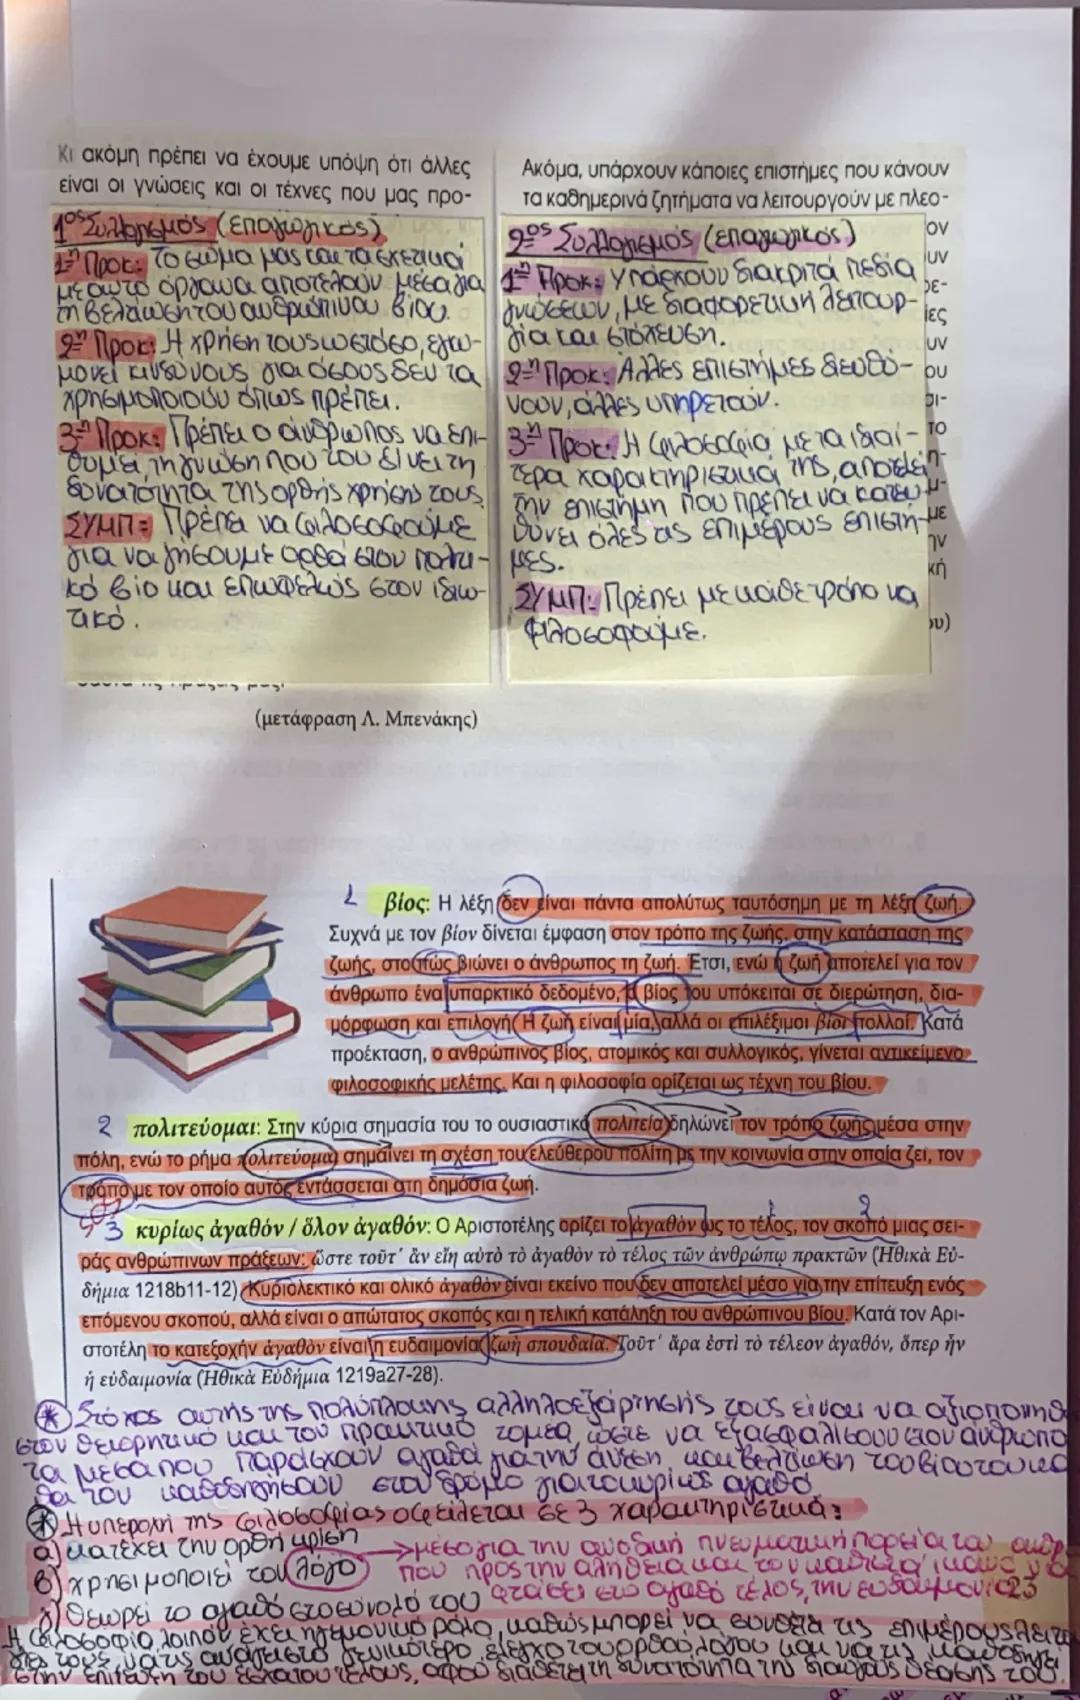 Κι ακόμη πρέπει να έχουμε υπόψη ότι άλλες
είναι οι γνώσεις και οι τέχνες που μας προ-
1ος Συλλογισμός (επαγωγικός)
1η Προκ: Το σώμα μας και τα σχετικά
με αυτό όργανα αποτελούν μέσα για
τη βελτίωση του ανθρώπινου βίου.
2η Προκ: Η χρήση τους ωστόσο, εγκυ-
μονεί κινδύνους για όσους δεν τα
χρησιμοποιούν όπως πρέπει.
3η Προκ: Πρέπει ο άνθρωπος να επι-
θυμεί τη γνώση που του δίνει τη
δυνατότητα της ορθής χρήσης τους.
ΣΥΜΠ: Πρέπει να φιλοσοφούμε
για να ζήσουμε ορθά στον πολιτι-
κό βίο και επωφελώς στον ιδιω-
τικό.
(μετάφραση Λ. Μπενάκης)
Ακόμα, υπάρχουν κάποιες επιστήμες που κάνουν
τα καθημερινά ζητήματα να λειτουργούν με πλεο-
2ος Συλλογισμός (επαγωγικός)
1η Προκ: Υπάρχουν διακριτά πεδία
γνώσεων, με διαφορετική λειτουρ-
γία και στόχευση.
2η Προκ: Άλλες επιστήμες διευθύ-
νουν, άλλες υπηρετούν.
3η Προκ: Η φιλοσοφία με τα ιδιαί-
τερα χαρακτηριστικά της, αποτελεί
την επιστήμη που πρέπει να κατευ
θύνει όλες τις επιμέρους επιστή-
μες.
ΣΥΜΠ: Πρέπει με κάθε τρόπο να
φιλοσοφούμε.
1 βίος: Η λέξη δεν είναι πάντα απολύτως ταυτόσημη με τη λέξη ζωή.
Συχνά με τον βίον δίνεται έμφαση στον τρόπο της ζωής, στην κατάσταση της
ζωής, στο πώς βιώνει ο άνθρωπος τη ζωή. Έτσι, ενώ η ζωή αποτελεί για τον
άνθρωπο ένα υπαρκτικό δεδομένο, ο βίος του υπόκειται σε διερώτηση, δια-
μόρφωση και επιλογή. Η ζωή είναι μία, αλλά οι επιλέξιμοι βίοι πολλοί. Κατά
προέκταση, ο ανθρώπινος βίος, ατομικός και συλλογικός, γίνεται αντικείμενο
φιλοσοφικής μελέτης. Και η φιλοσοφία ορίζεται ως τέχνη του βίου.
2 πολιτεύομαι: Στην κύρια σημασία του το ουσιαστικό πολιτεία δηλώνει τον τρόπο ζωής μέσα στην
πόλη, ενώ το ρήμα πολιτεύομαι σημαίνει τη σχέση του ελεύθερου πολίτη με την κοινωνία στην οποία ζει, τον
τρόπο με τον οποίο αυτός εντάσσεται στη δημόσια ζωή.
3 κυρίως ἀγαθόν / ὅλον ἀγαθόν: Ο Αριστοτέλης ορίζει το ἀγαθὸν ως το τέλος, τον σκοπό μιας σει-
ράς ανθρώπινων πράξεων: ὥστε τοῦτ' ἂν εἴη αὐτὸ τὸ ἀγαθὸν τὸ τέλος τῶν ἀνθρώπῳ πρακτῶν (Ἠθικὰ Εὐ-
δήμια 1218b11-12). Κυριολεκτικό και ολικό ἀγαθὸν είναι εκείνο που δεν αποτελεί μέσο για την επίτευξη ενός
επόμενου σκοπού, αλλά είναι ο απώτατος σκοπός και η τελική κατάληξη του ανθρώπινου βίου. Κατά τον Αρι-
στοτέλη το κατεξοχήν ἀγαθὸν είναι η ευδαιμονία, ζωὴ σπουδαία. Τοῦτ' ἄρα ἐστὶ τὸ τέλεον ἀγαθόν, ὅπερ ἦν
ἡ εὐδαιμονία (Ἠθικὰ Εὐδήμια 1219a27-28).
Στόχος αυτής της πολύπλοκης αλληλοεξάρτησής τους είναι να αξιοποιηθ
στον θεωρητικό και τον πρακτικό τομέα ώστε να εξασφαλίσουν στον άνθρωπο
τα μέσα που παράσχουν αγαθά για την αύξηση και βελτίωση του βίου του και
θα τον καθοδηγήσουν στον δρόμο για το κυρίως αγαθό.
Η υπεροχή της φιλοσοφίας οφείλεται σε 3 χαρακτηριστικά:
α) κατέχει την ορθή κρίση
β) χρησιμοποιεί τον λόγο → μέσο για την ανοδική πνευματική πορεία του ανθρ.
που προς την αλήθεια και τον καθιστά ικανό να
φτάσει στο αγαθό τέλος, την ευδαιμονία
23
γ) θεωρεί το αγαθό στο σύνολό του
Η φιλοσοφία λοιπόν έχει ηγεμονικό ρόλο, καθώς μπορεί να συνθέτει τις επιμέρους λειτο
γίες τους, να τις ανάγει στο γενικότερο έλεγχο του ορθού λόγου και να τις καθοδηγεί
στην επίτευξη του έσχατου τέλους, αφού διαθέτει τη δυνατότητα της θέασής του.